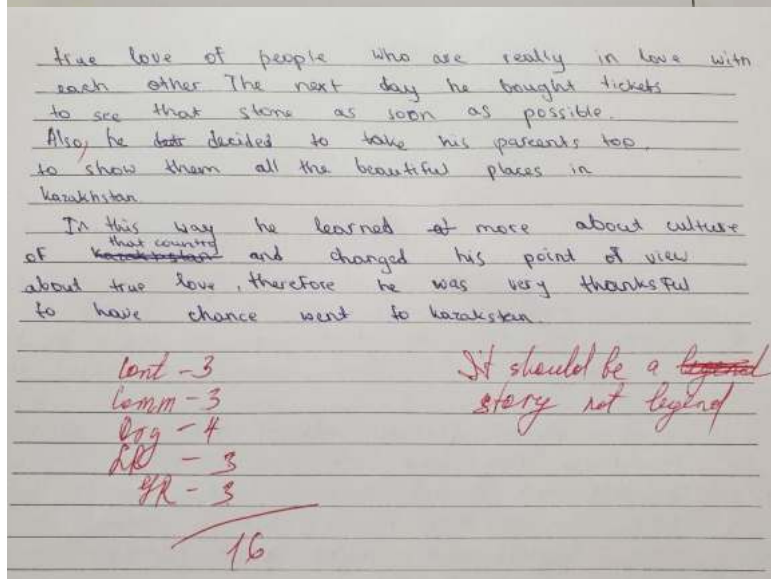 true love of people who are really in love with
each other The next day he bought tickets
to see that stone as soon as possible.
Also, he decided to take his parents too,
to show them all the beautiful places in
kazakhstan
In this way he learned more about culture
of that country and changed his point of view
about true love, therefore he was very thanksful
to have chance went to kazakstan.
Cont - 3
Comm - 3
Org - 4
LR - 3
GR - 3
16
It should be a legend
story not legend